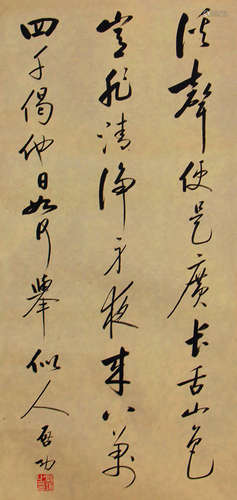 溪聲便是廣長舌山色
豈非清淨身夜來八萬
四千偈他日如何舉似人 啓功